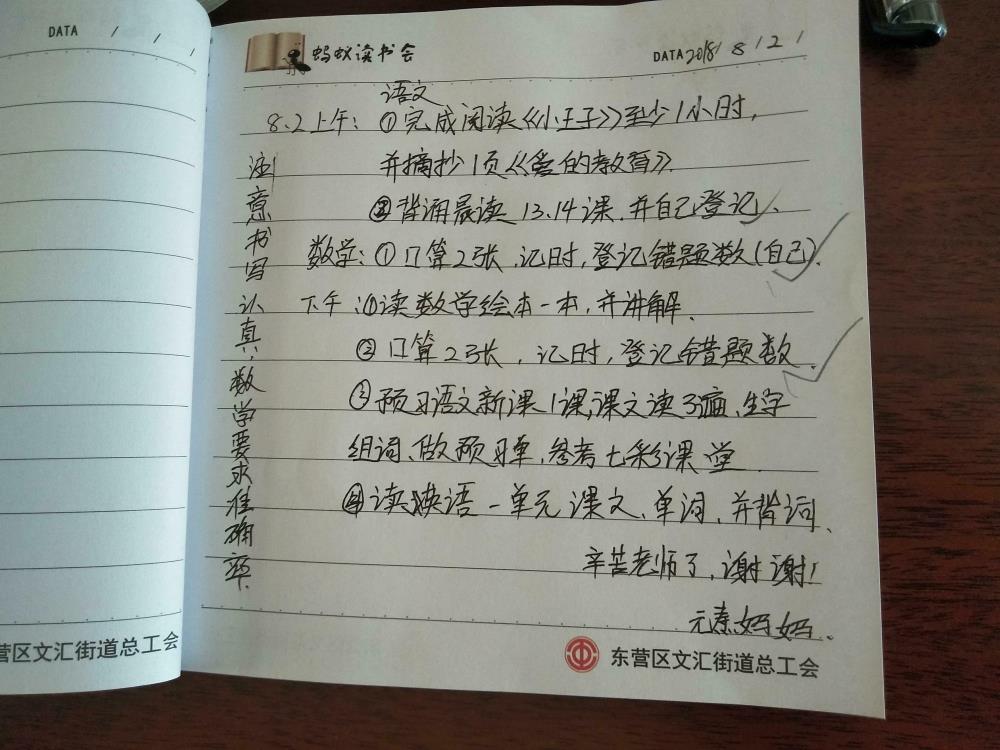 DATA / / /
蚂蚁读书会
DATA 2018 / 8 / 2 /
语文
8.2上午：①完成阅读《小王子》至少1小时，
并摘抄1页《爱的教育》.
②背诵晨读13.14课.并自己登记、
数学：①口算2张，记时，登记错题数(自己).
下午：①读数学绘本一本，并讲解.
②口算2张，记时，登记错题数.
③预习语文新课1课，课文读3遍、生字
组词、做预习单，参考七彩课堂.
④读英语一单元课文、单词，并背词.
辛苦老师了，谢谢!
元素妈妈.
注意书写认真，数学要求准确率.
营区文汇街道总工会
东营区文汇街道总工会